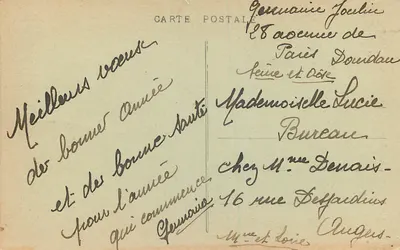 CARTE POSTALE
Meilleurs vœux
de bonne année
et de bonne santé
pour l'année
qui commence
Germaine
Germaine Joulin
28 avenue de
Paris Dourdan
Seine et Oise
Mademoiselle Lucie
Bureau
chez Mme Denais-
16 rue Desjardins
Angers-
Mne et Loire